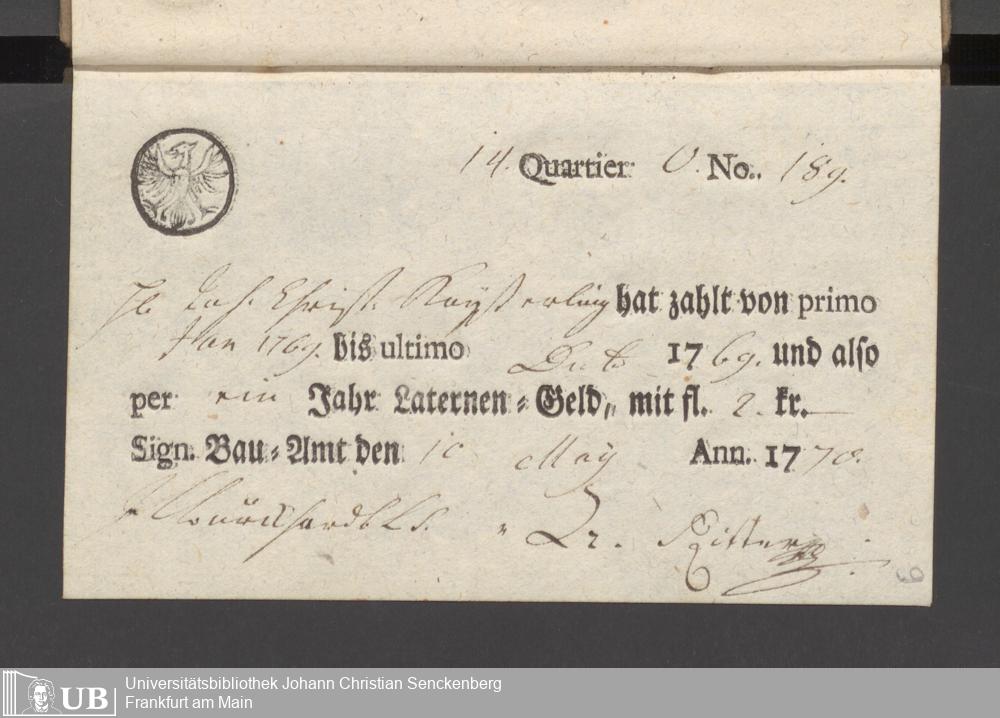 14. Quartier O. No. 189.
Joh. Christ. Kayßerling hat zahlt von primo
Jan 1769. bis ultimo Dito 1769. und also
per ein Jahr Laternen-Geld, mit fl. 2. kr. —
Sign. Bau-Amt den 10 May Ann. 1770.
Ritter
Universitätsbibliothek Johann Christian Senckenberg
Frankfurt am Main
UB